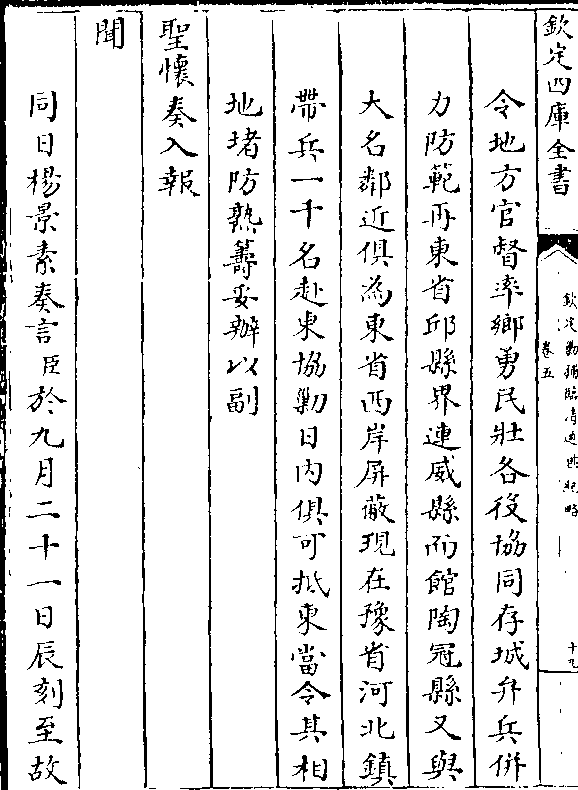 欽定四庫全書
欽定勦捕臨清逆匪紀略
卷五
十九
令地方官督率鄉勇民壯各役協同存城弁兵併
力防範再東省邱縣界連威縣而館陶冠縣又與
大名鄰近俱為東省西岸屏蔽現在豫省河北鎮
帶兵一千名赴東協勦日內俱可抵東當令其相
地堵防熟籌妥辦以副
聖懷奏入報
聞
同日楊景素奏言臣於九月二十一日辰刻至故